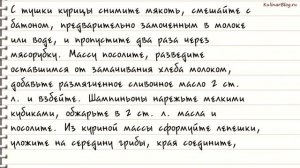 KulinarBlog.ru
С тушки курицы снимите мякоть, смешайте с
батоном, предварительно замоченным в молоке
или воде, и пропустите два раза через
мясорубку. Массу посолите, разведите
оставшимся от замачивания хлеба молоком,
добавьте размягченное сливочное масло 2 ст.
л. и взбейте. Шампиньоны нарежьте мелкими
кубиками, обжарьте в 2 ст. л. масла и
посолите. Из куриной массы сформуйте лепешки,
уложите на середину грибы, края соедините,